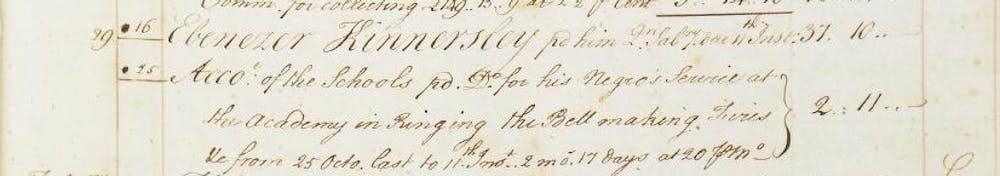 Comm. for collecting 249..15..9 at 2 2 ⅌ Cent
29 • 16 Ebenezer Kinnersley pd him Qrs Salry. due 11th Inst: 37. 10..
• 25 Acco.t of the Schools pd. Do for his Negro's Service at
the Academy in Ringing the Bell making Fires
&c from 25 Octo. last to 11th Inst.. 2 mo. 17 days at 20 ⅌ Mo 2.. 11..